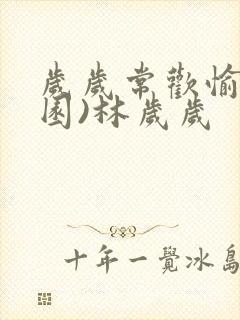 歲歲常歡愉
園)林歲歲
十年一覺冰島